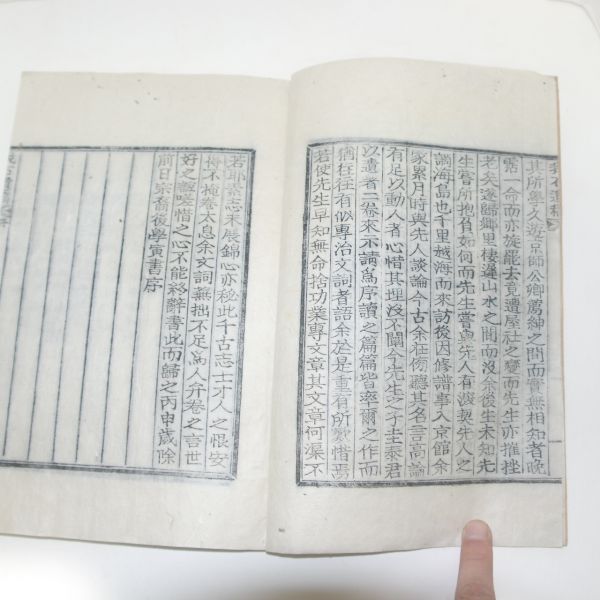 其所學久遊京師公卿薦紳之間而實無相知者晚
霑一命而亦旋罷去竟遭屋社之變而先生亦摧挫
老矣遂歸鄉里棲遲山水之間而沒余後生未知先
生嘗所抱負如何而先生嘗與先人有深契先人之
謫海島也千里越海而來訪後因修譜事入京館余
家累月時與先人談論今古余在傍聽其名言高論
有足以動人者心惜其埋沒不闡今先生之子圭泰君
以遺者二卷來示請爲序讀之篇篇皆率爾之作而
猶往往有似專治文詞者語余於是重有所歎惜焉
若使先生早知無命捨功業專文章其文章何渠不
若耶素志未展錦心亦秘此千古志士才人之恨安
得不掩卷太息余文詞蕪拙不足爲人弁卷之言世
好之感嗟惜之心不能終辭書此而歸之丙申歲除
前日宗裔後學寅書序